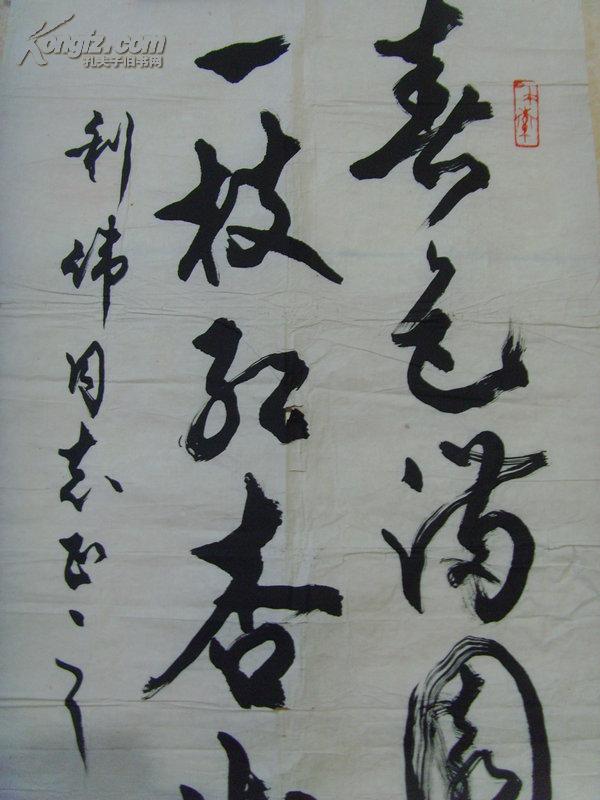 Kongfz.com
孔夫子旧书网
春色满园
一枝红杏出
利伟同志正